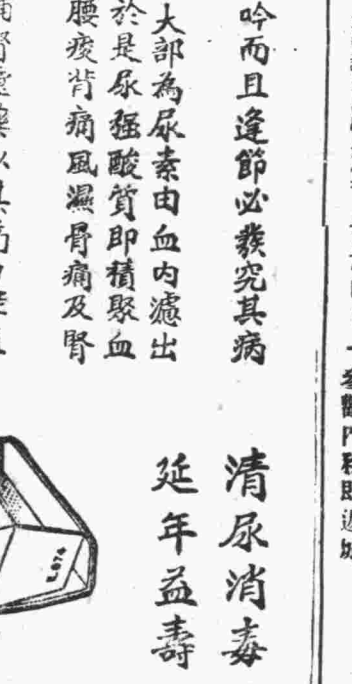 吟而且逢節必發究其病
大部為尿素由血内濾出
於是尿强酸質即積聚血
腰痠背痛風濕骨痛及腎
清尿消毒
延年益壽